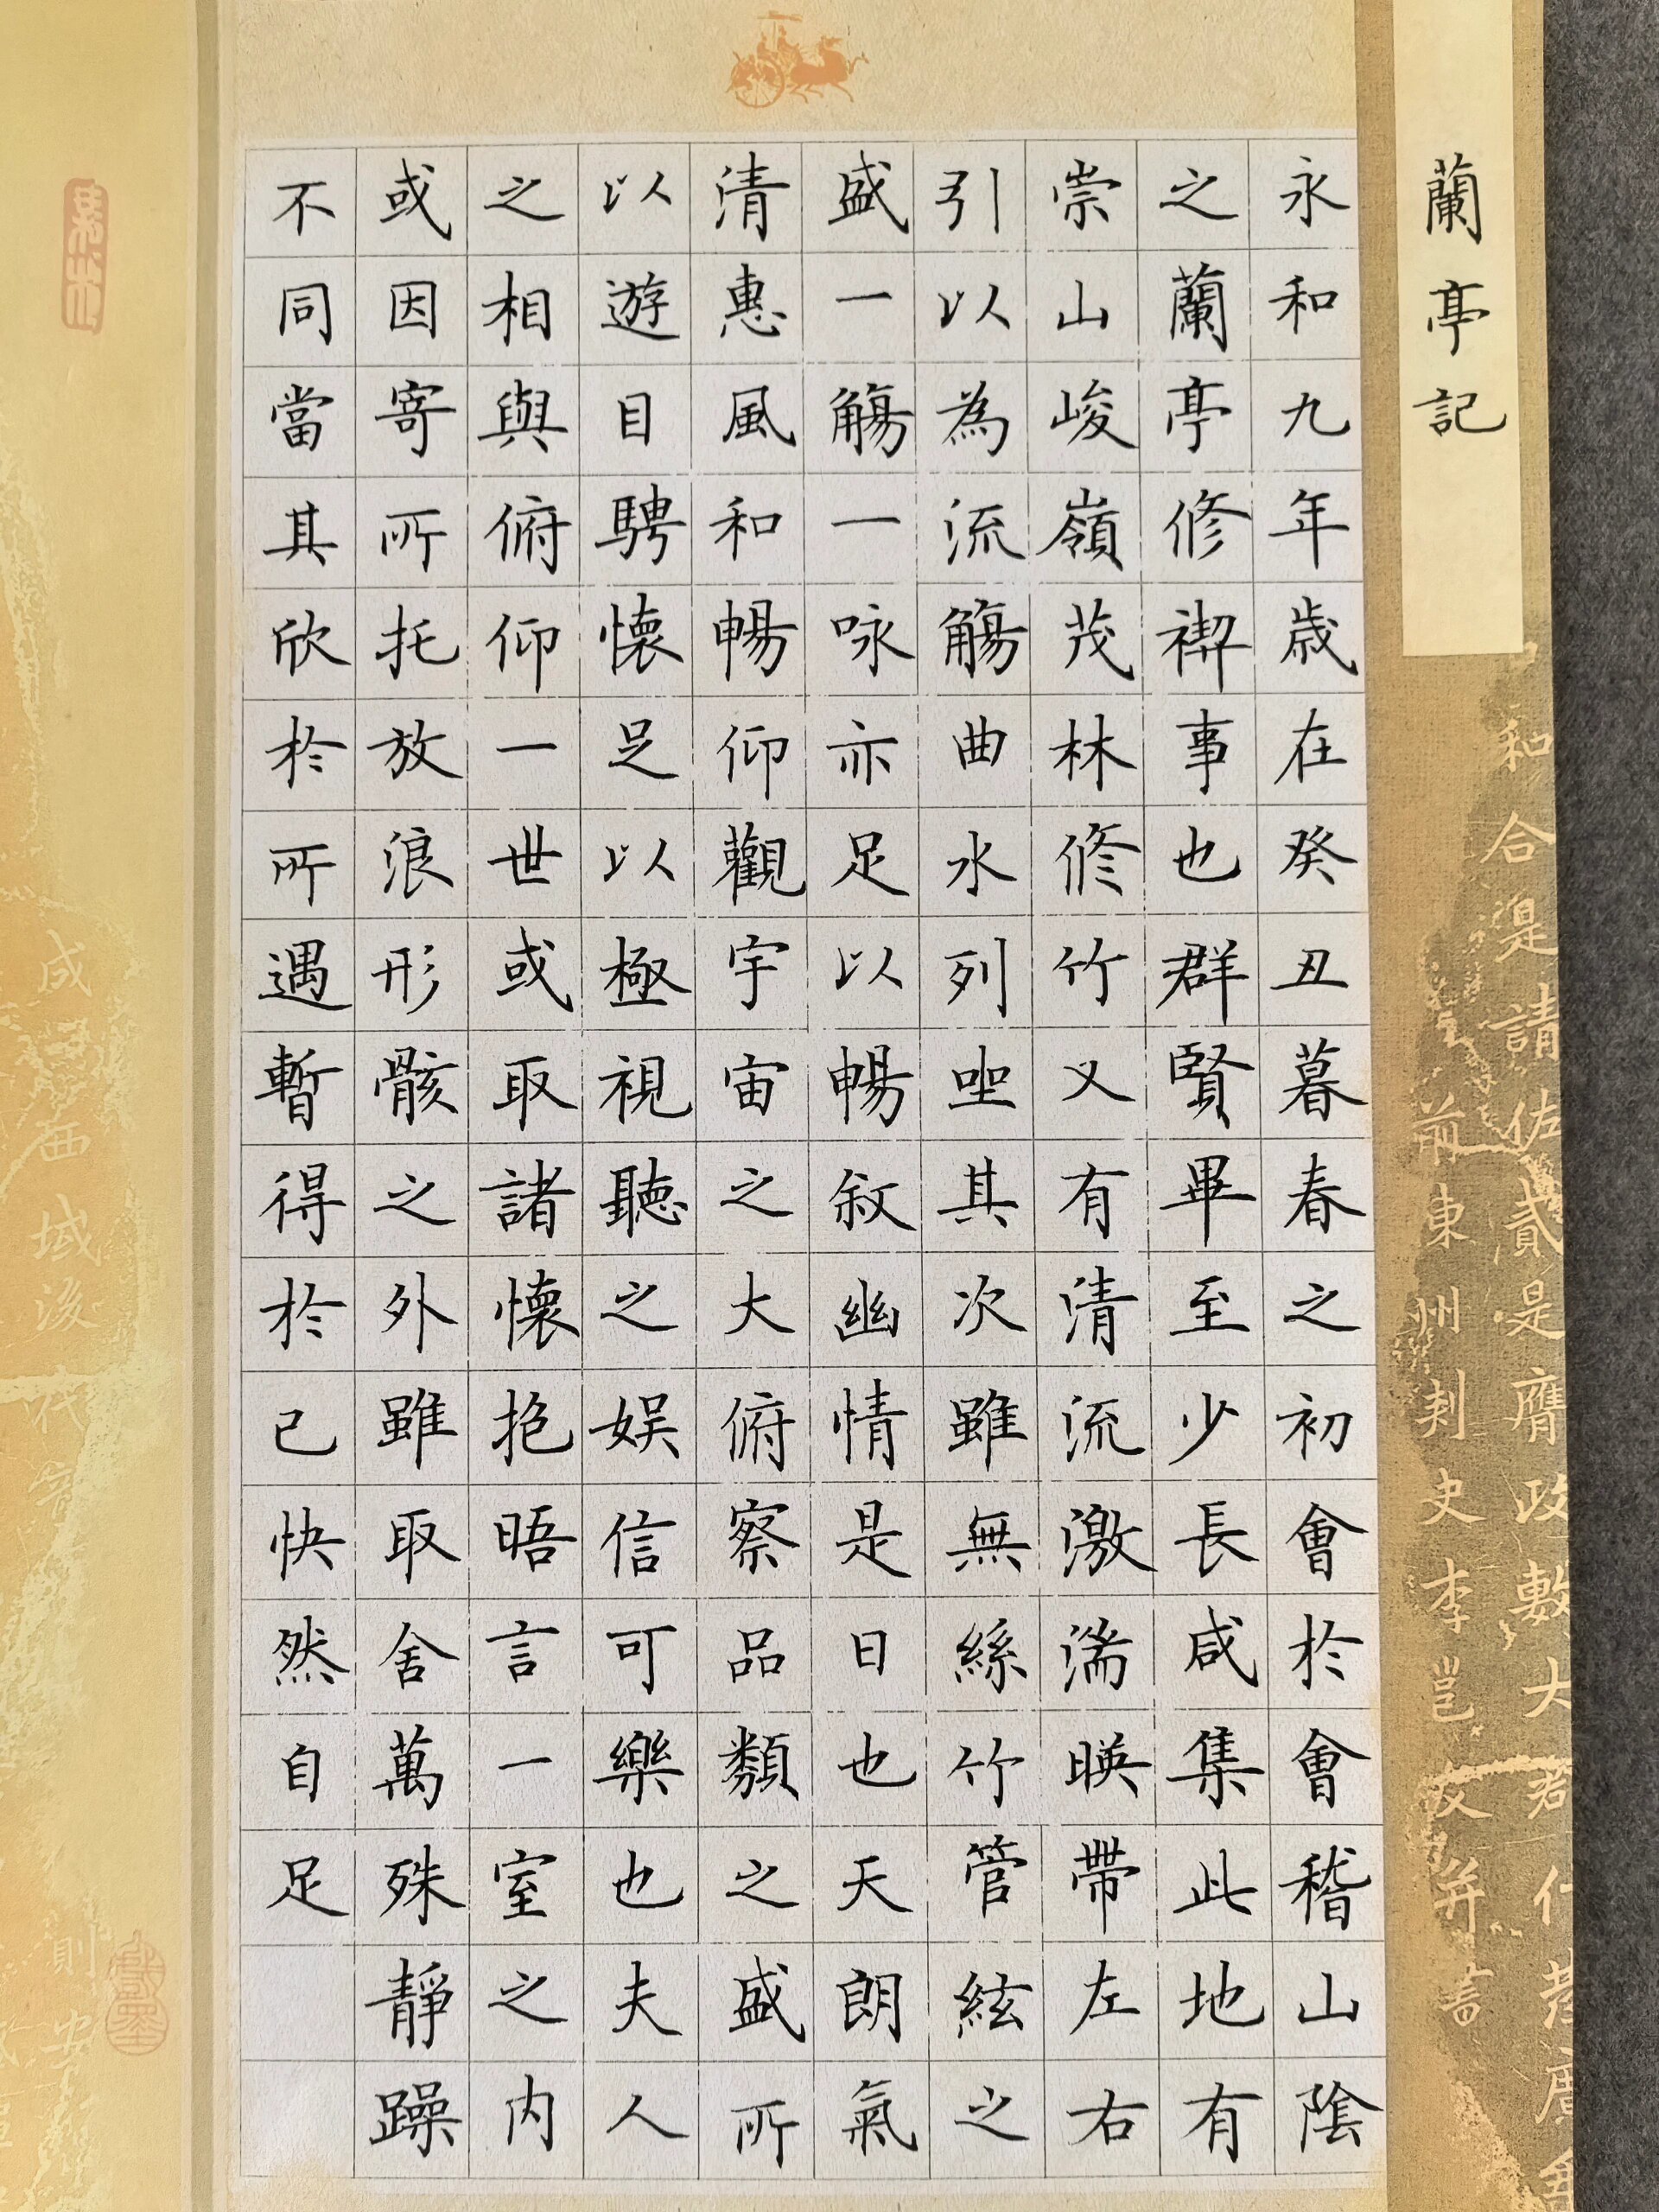 蘭亭記
永和九年歲在癸丑暮春之初會於會稽山陰
之蘭亭修禊事也群賢畢至少長咸集此地有
崇山峻嶺茂林修竹又有清流激湍暎帶左右
引以為流觴曲水列坐其次雖無絲竹管絃之
盛一觴一咏亦足以暢敘幽情是日也天朗氣
清惠風和暢仰觀宇宙之大俯察品類之盛所
以遊目騁懷足以極視聽之娛信可樂也夫人
之相與俯仰一世或取諸懷抱晤言一室之內
或因寄所托放浪形骸之外雖取舍萬殊靜躁
不同當其欣於所遇暫得於己快然自足
和合是請佐貳是膺政數大
前東州刺史李邕文并書
咸西域後代